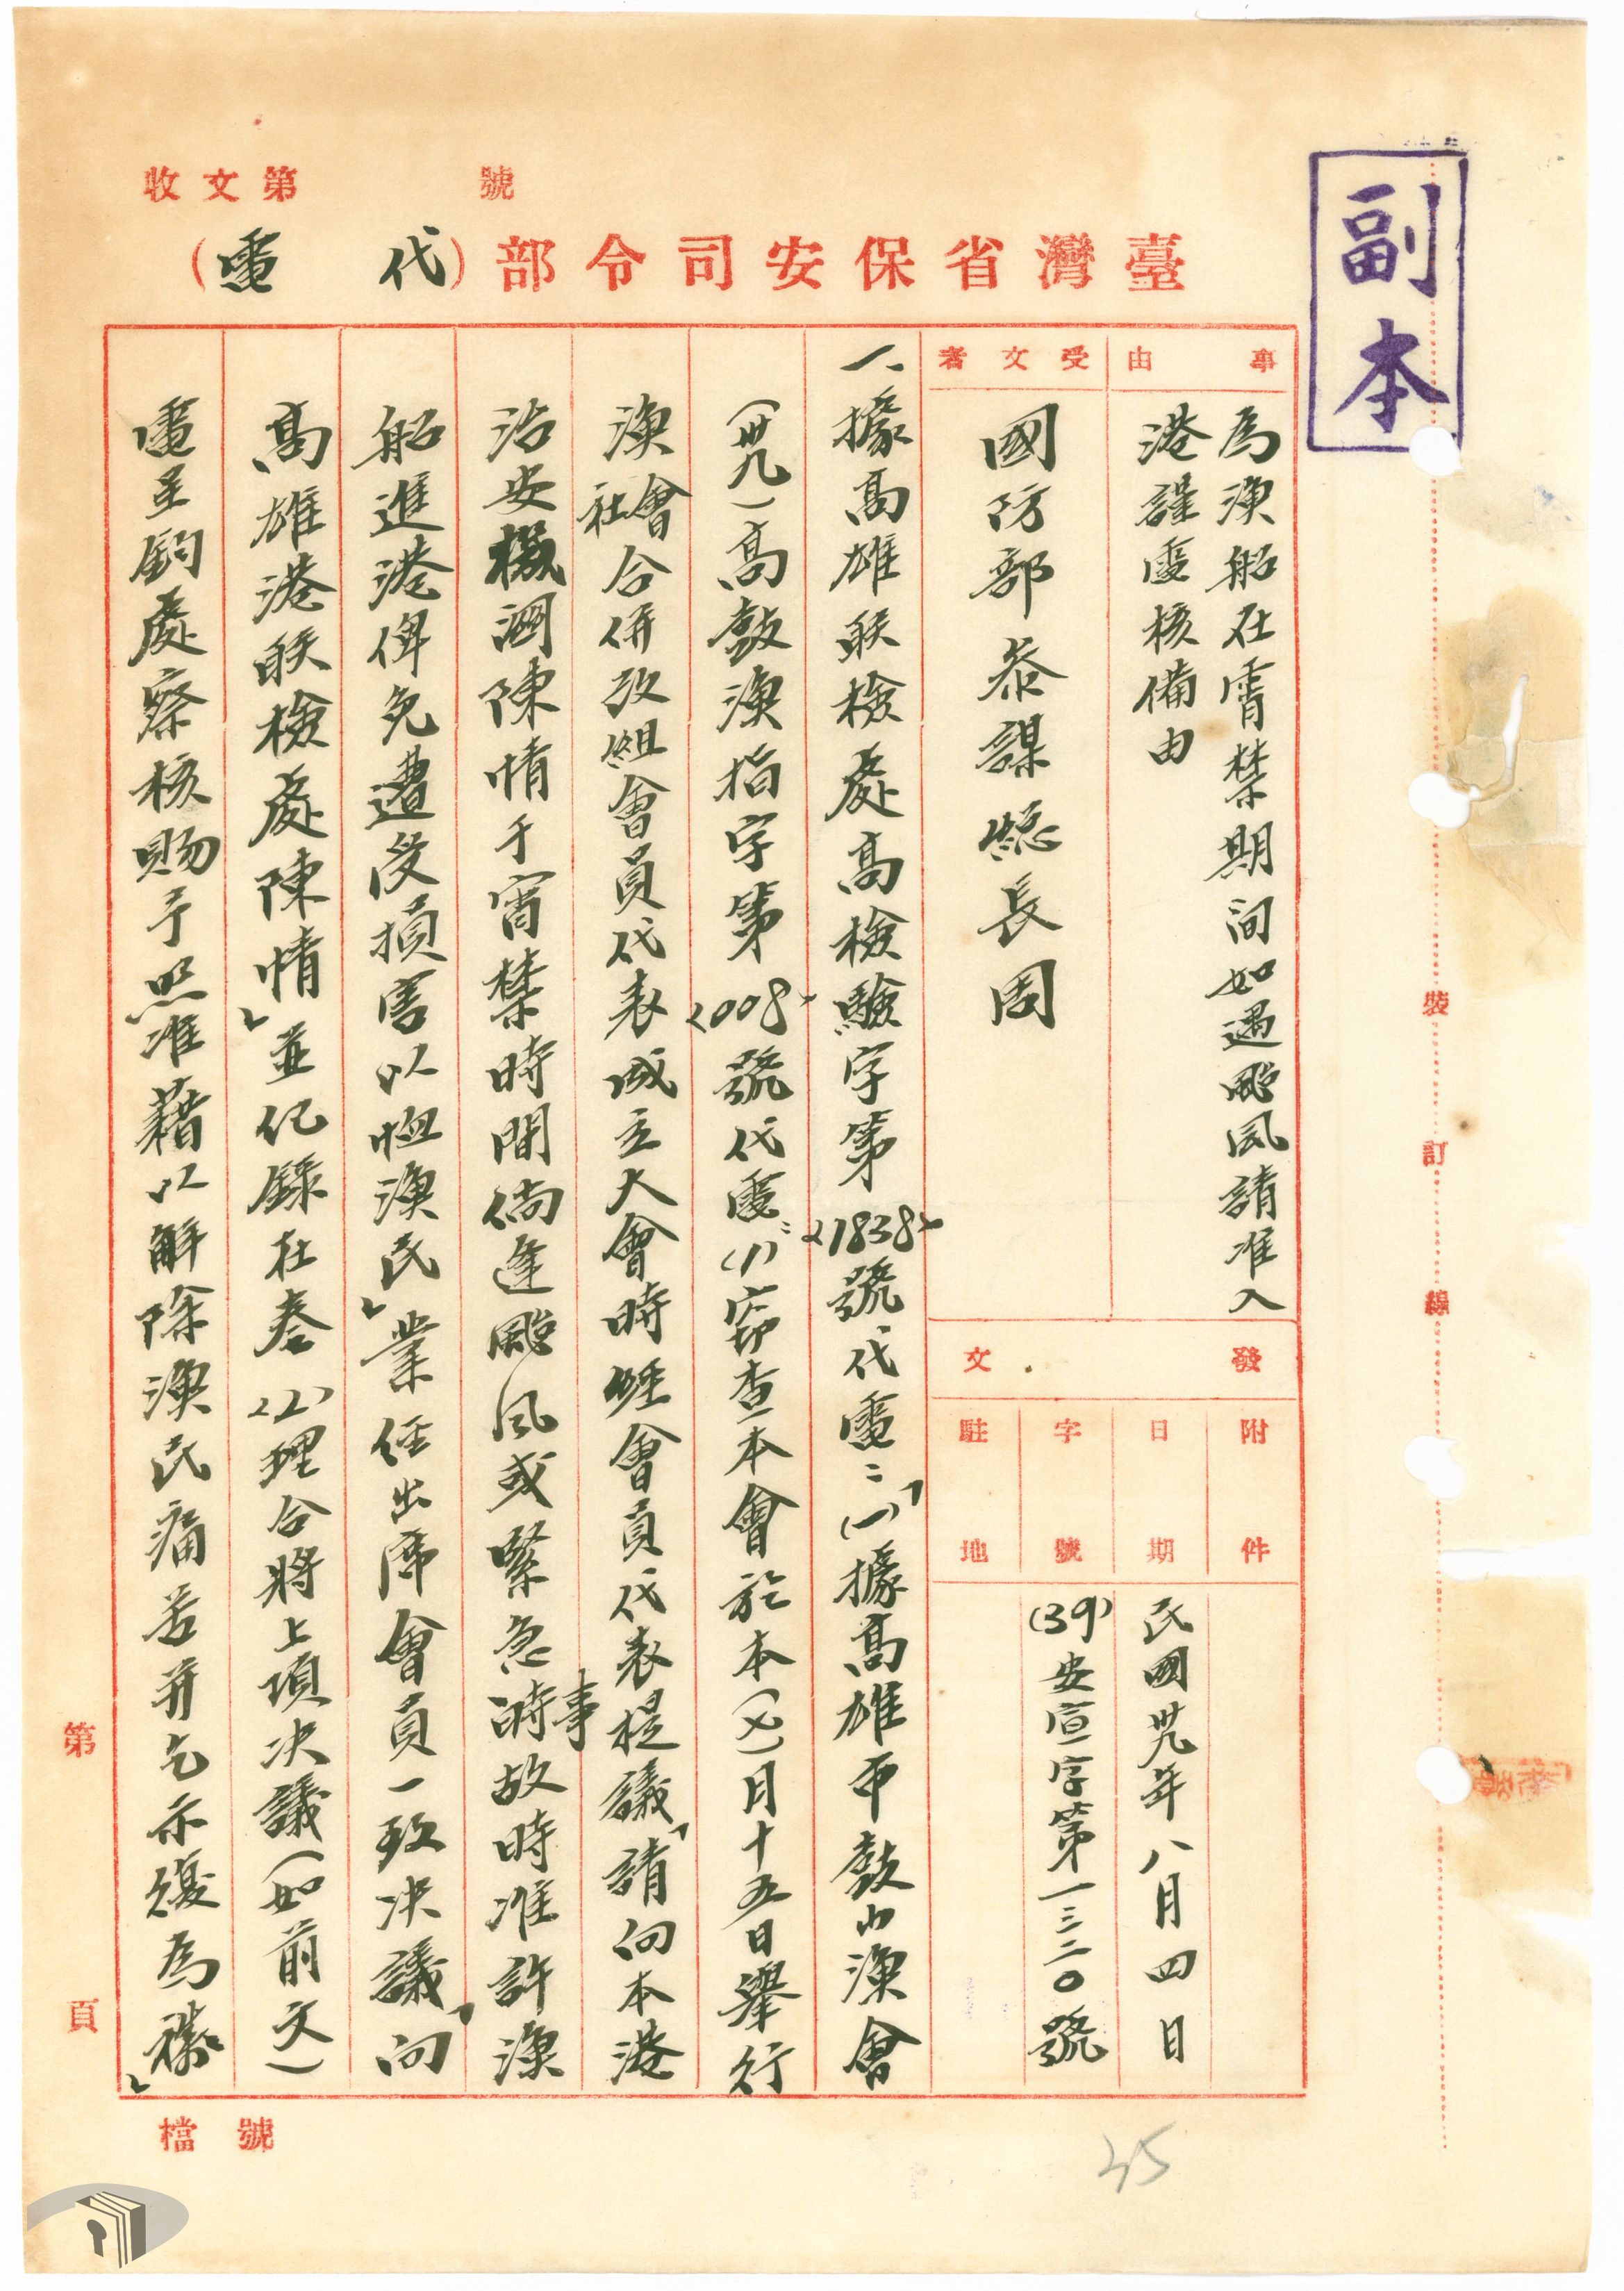 副本
收文第 號
臺灣省保安司令部(代電)
事由
為漁船在宵禁期间如遇颱風請准入
港謹電核備由
受文者
國防部參謀總長周
發文
附件
日期
民國卅九年八月四日
字號
(39)安宣字第一三二〇號
駐地
一、據高雄联檢處高檢驗字第21838號代電:「(一)據高雄市鼓山漁會
(卅九)高鼓漁指字第2008號代電:(1)竊查本會於本(七)月十五日舉行
漁會社會合併改組會員代表成立大會時經會員代表提議「請向本港
治安機関陳情于宵禁時間倘逢颱風或緊急事故時准許漁
船進港俾免遭受損害以恤漁民」業經出席會員一致決議「向
高雄港联檢處陳情」並紀錄在卷(2)理合將上項決議(如前文)
電呈鈞處察核賜予照准藉以解除漁民痛苦并乞示復為禱」
裝
訂
線
第 頁
檔號
35